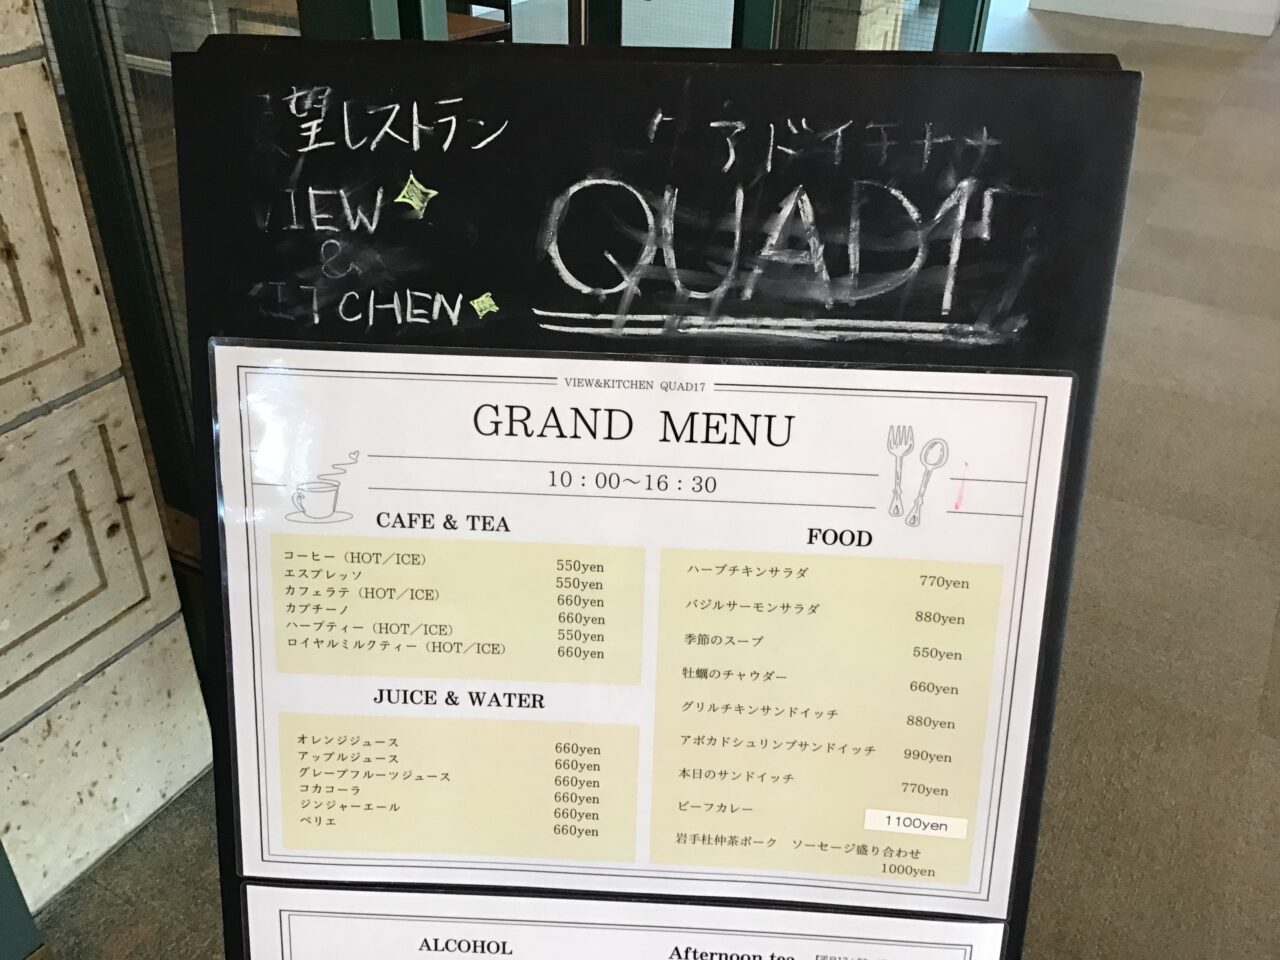 望レストラン
VIEW
&
KITCHEN
クアドイチナナ
QUAD17
VIEW&KITCHEN QUAD17
GRAND MENU
10：00～16：30
CAFE & TEA
コーヒー（HOT／ICE） 550yen
エスプレッソ 550yen
カフェラテ（HOT／ICE） 660yen
カプチーノ 660yen
ハーブティー（HOT／ICE） 550yen
ロイヤルミルクティー（HOT／ICE） 660yen
JUICE & WATER
オレンジジュース 660yen
アップルジュース 660yen
グレープフルーツジュース 660yen
コカコーラ 660yen
ジンジャーエール 660yen
ペリエ 660yen
FOOD
ハーブチキンサラダ 770yen
バジルサーモンサラダ 880yen
季節のスープ 550yen
牡蠣のチャウダー 660yen
グリルチキンサンドイッチ 880yen
アボカドシュリンプサンドイッチ 990yen
本日のサンドイッチ 770yen
ビーフカレー 1100yen
岩手杜仲茶ポーク ソーセージ盛り合わせ
1000yen
ALCOHOL
Afternoon tea